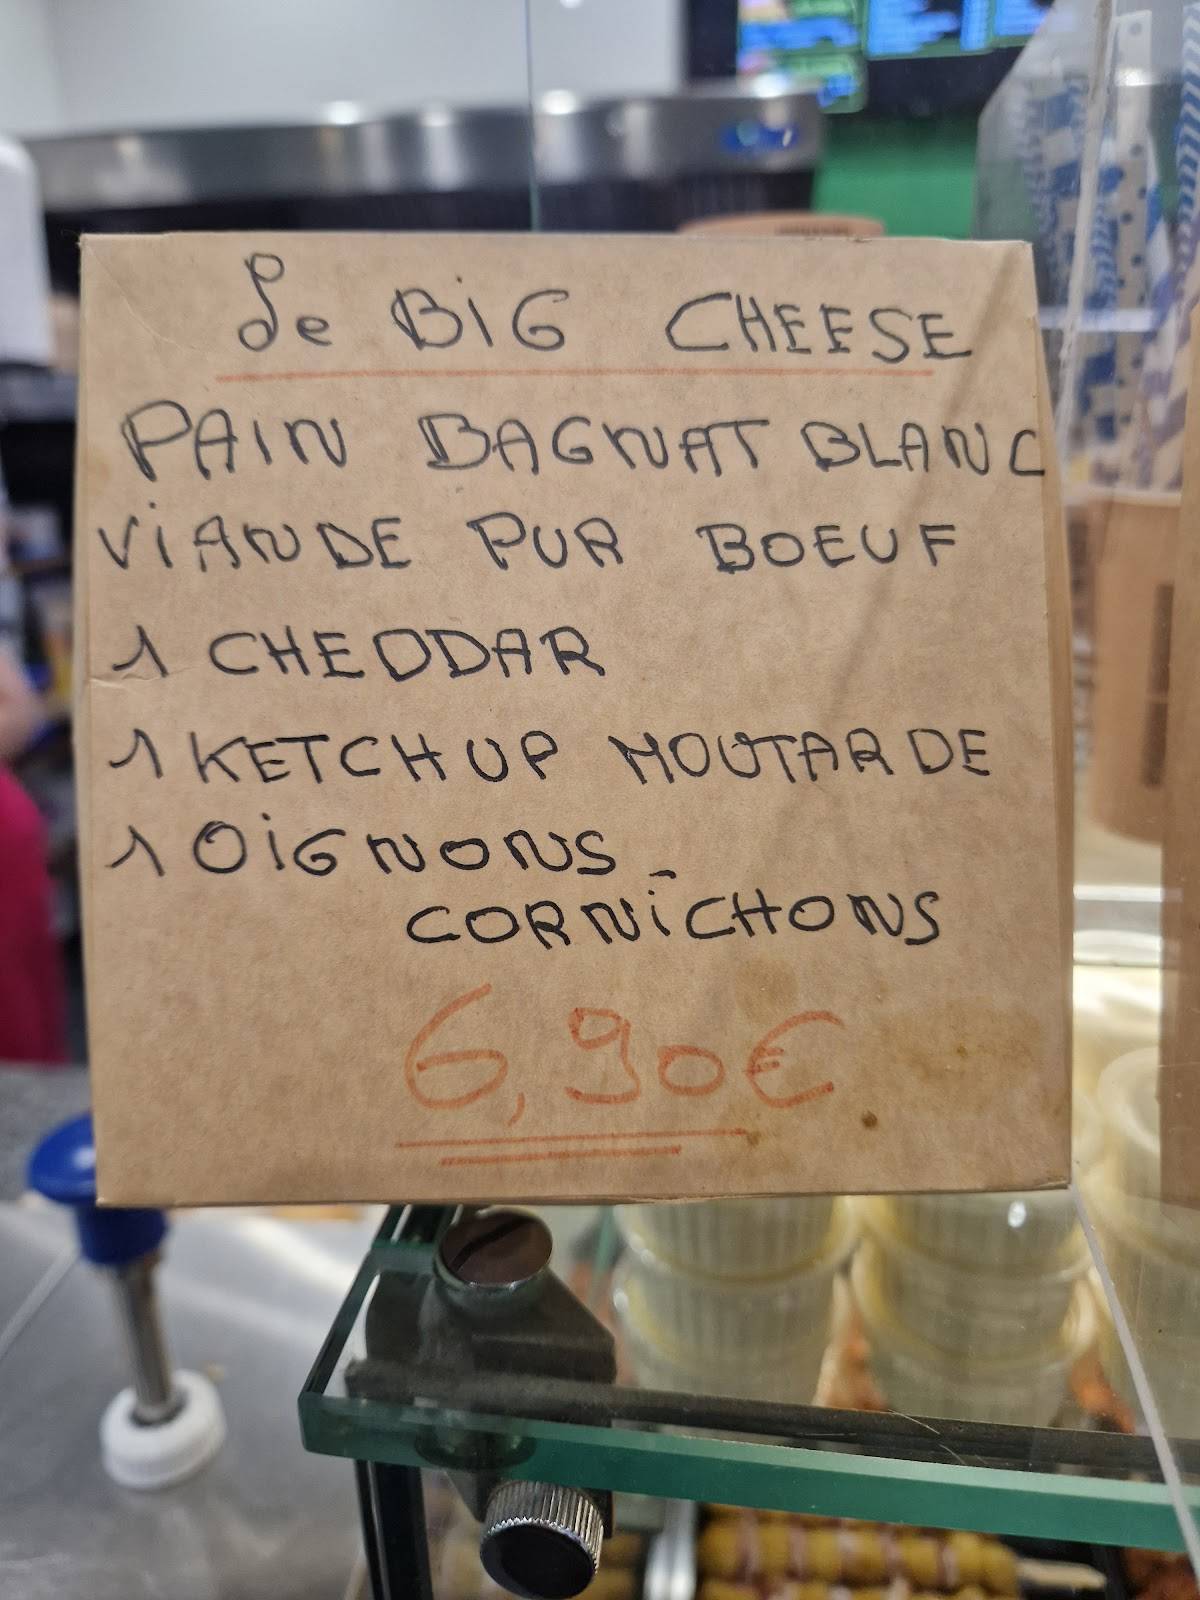 Le BiG CHEESE
PAIN BAGNAT BLANC
ViANDE PUR BOEUF
1 CHEDDAR
1 KETCHUP MOUTARDE
1 OiGNONS -
CORNiCHONS
6,90€